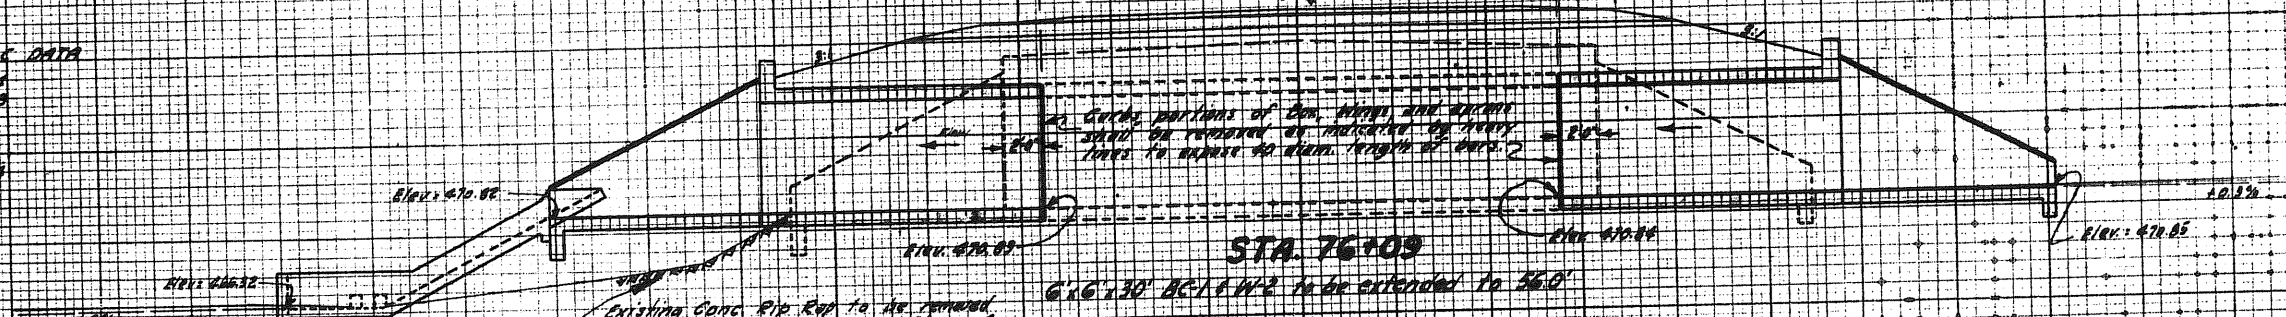 DATA
3:1
3:1
Curbs, portions of Box, Wings and aprons
shall be removed as indicated by heavy
lines to expose 40 diam. length of bars.
2'-0"
2'-0"
Elev. = 470.82
+0.3%
Elev. 470.83
Elev. 470.84
Elev. = 470.85
STA. 76+09
Elev. = 466.32
6'x6'x30' BC-1 & W-2 to be extended to 56.0'
Existing Conc. Rip Rap to be removed